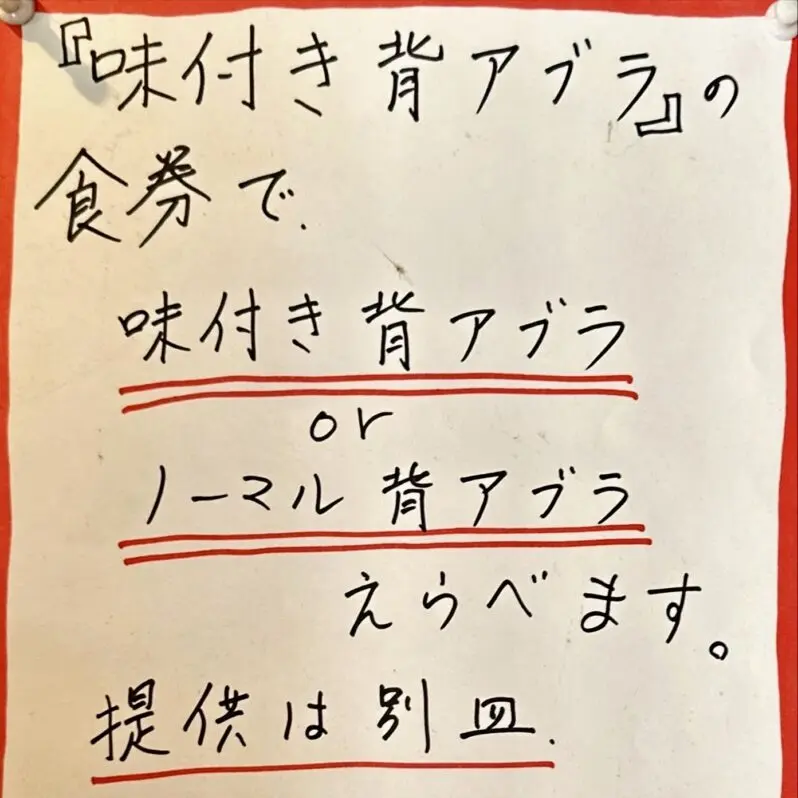 『味付き背アブラ』の
食券で.
味付き背アブラ
or
ノーマル背アブラ
えらべます。
提供は別皿.